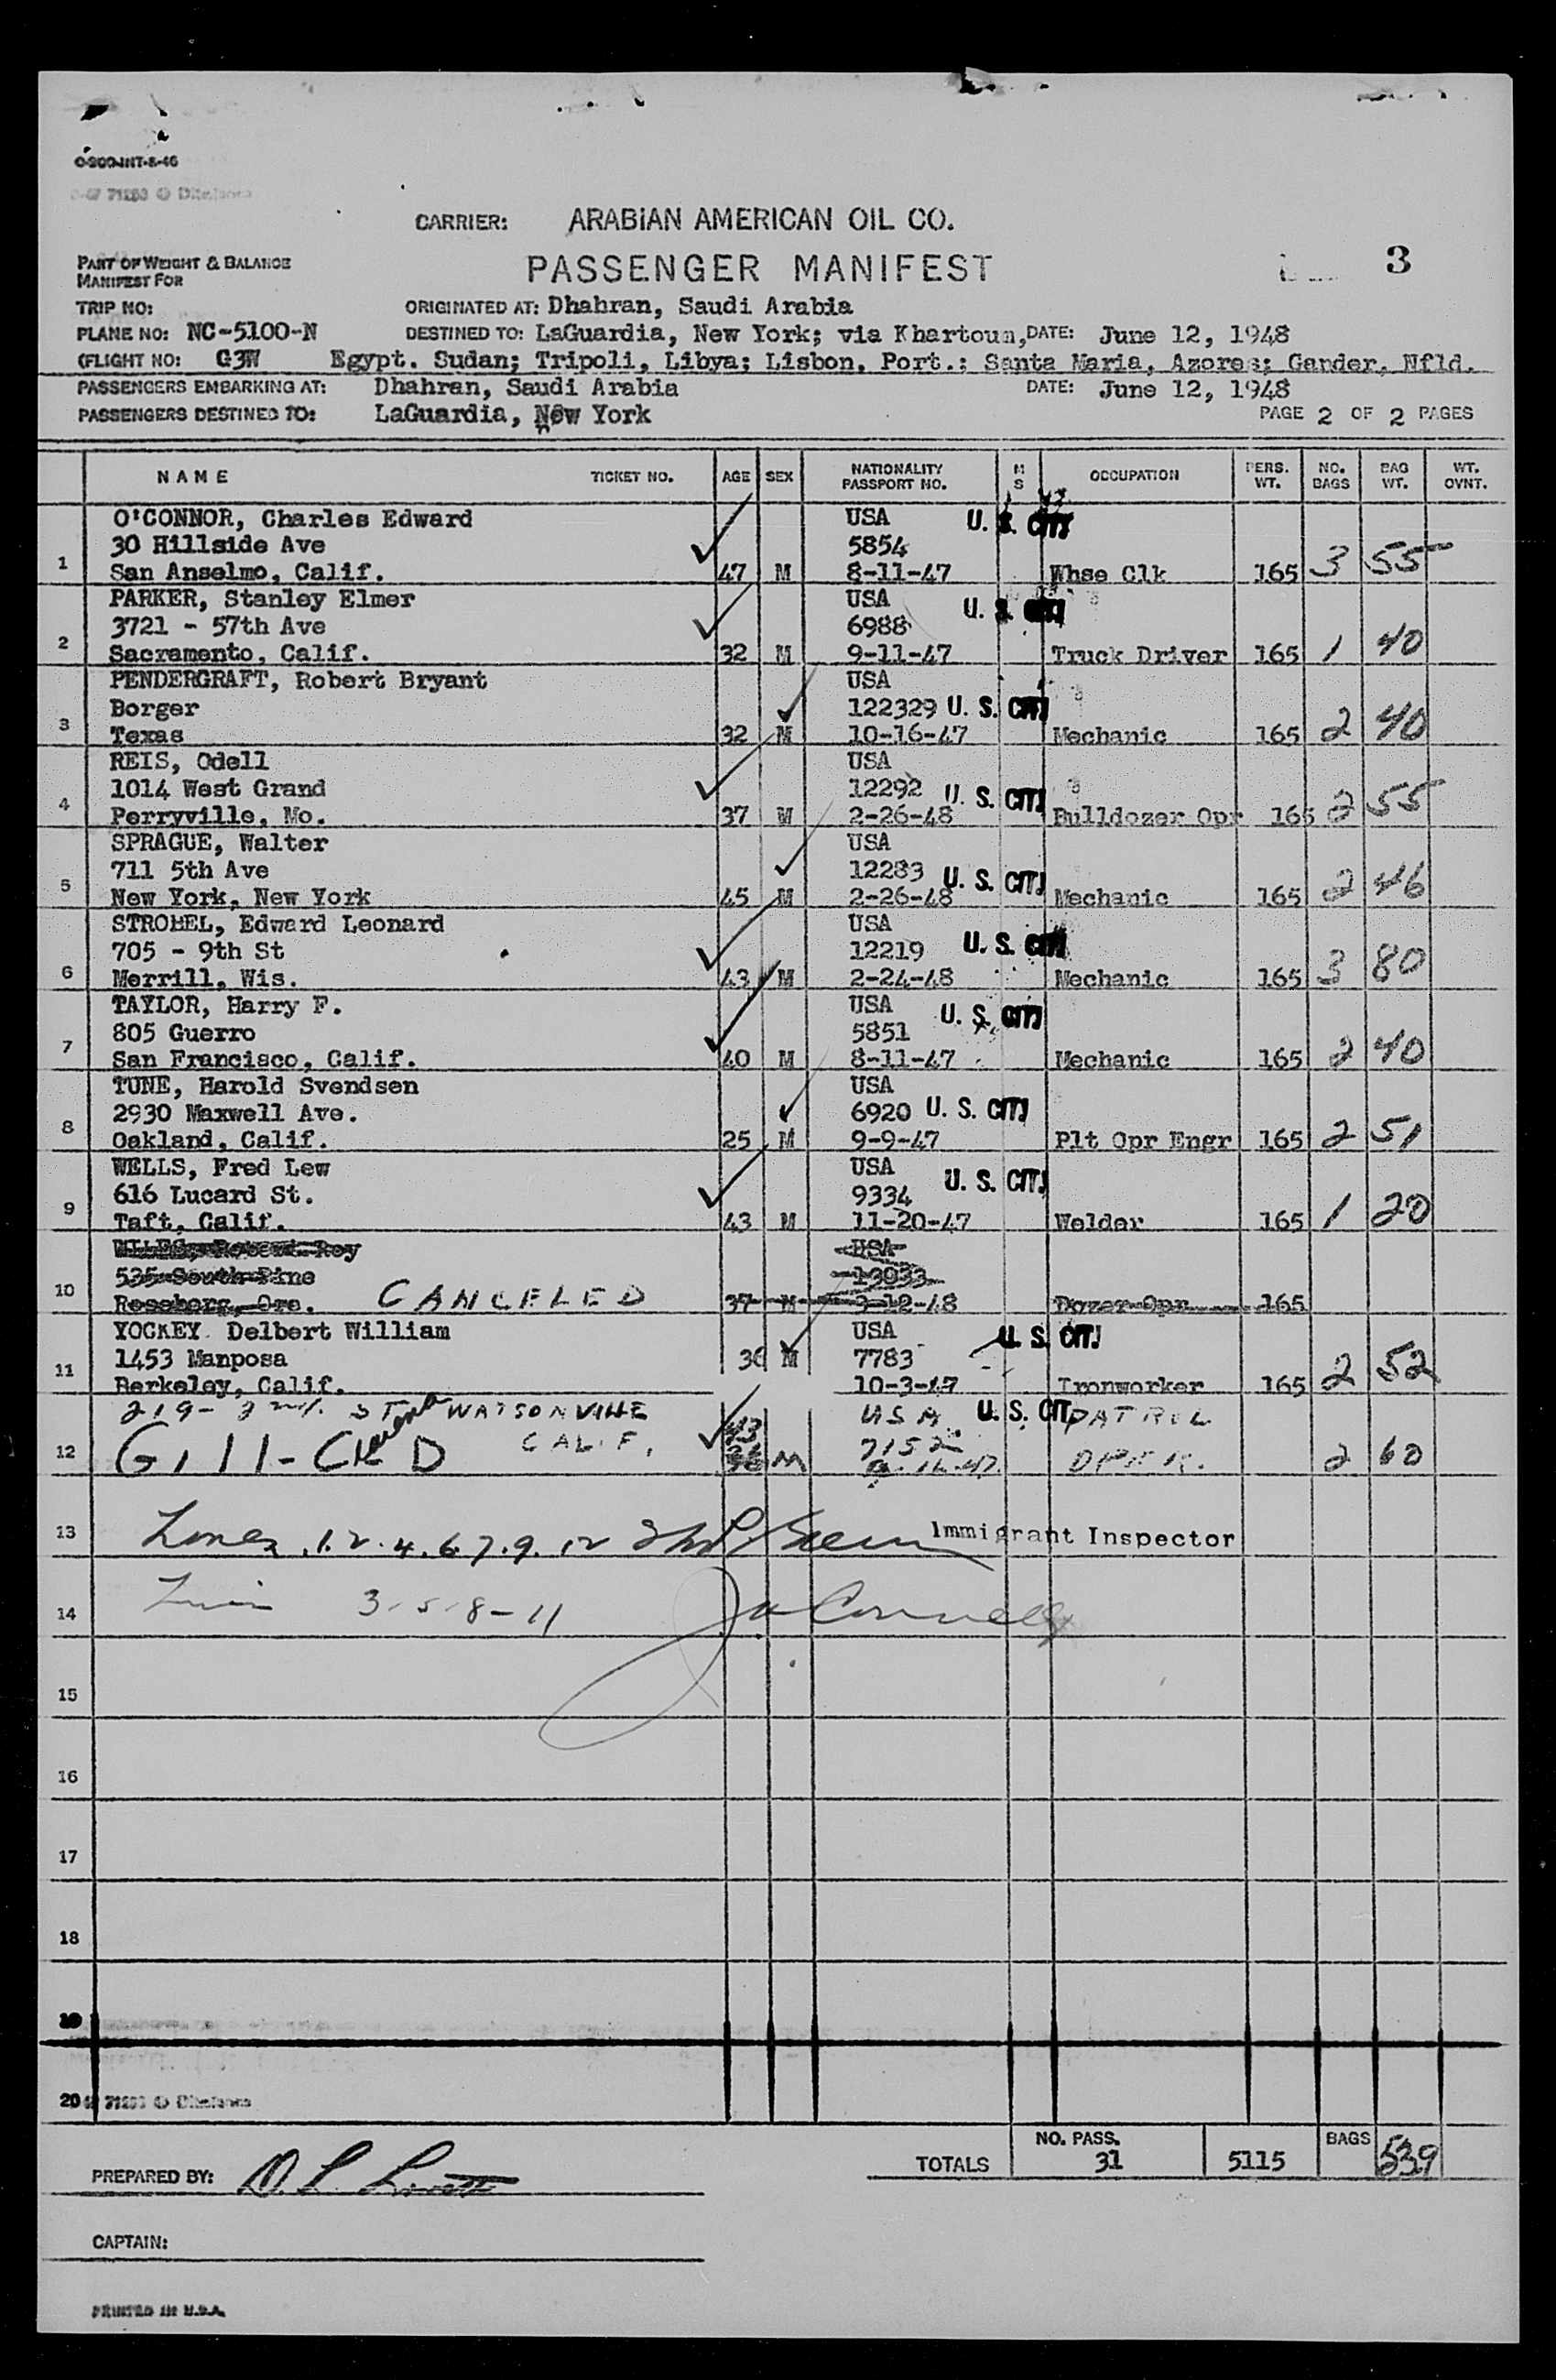 C-200-INT-8-46
CARRIER: ARABIAN AMERICAN OIL CO.
PART OF WEIGHT & BALANCE
MANIFEST FOR
PASSENGER MANIFEST
3
TRIP NO:
ORIGINATED AT: Dhahran, Saudi Arabia
PLANE NO: NC-5100-N
DESTINED TO: LaGuardia, New York; via Khartoum, DATE: June 12, 1948
FLIGHT NO: G3W Egypt. Sudan; Tripoli, Libya; Lisbon, Port.; Santa Maria, Azores; Gander, Nfld.
PASSENGERS EMBARKING AT: Dhahran, Saudi Arabia DATE: June 12, 1948
PASSENGERS DESTINED TO: LaGuardia, New York PAGE 2 OF 2 PAGES
NAME TICKET NO. AGE SEX NATIONALITY PASSPORT NO. M S OCCUPATION PERS. WT. NO. BAGS BAG WT. WT. OVNT.
O'CONNOR, Charles Edward USA U. S. CIT.
30 Hillside Ave 5854
1 San Anselmo, Calif. 47 M 8-11-47 Whse Clk 165 3 55
PARKER, Stanley Elmer USA U. S. CIT.
3721 - 57th Ave 6988
2 Sacramento, Calif. 32 M 9-11-47 Truck Driver 165 1 40
PENDERGRAFT, Robert Bryant USA
Borger 122329 U. S. CIT.
3 Texas 32 M 10-16-47 Mechanic 165 2 40
REIS, Odell USA
1014 West Grand 12292 U. S. CIT.
4 Perryville, Mo. 37 M 2-26-48 Bulldozer Opr 165 2 55
SPRAGUE, Walter USA
711 5th Ave 12283 U. S. CIT.
5 New York, New York 45 M 2-26-48 Mechanic 165 2 46
STROBEL, Edward Leonard USA
705 - 9th St 12219 U. S. CIT.
6 Merrill, Wis. 43 M 2-24-48 Mechanic 165 3 80
TAYLOR, Harry F. USA U. S. CIT.
805 Guerro 5851
7 San Francisco, Calif. 40 M 8-11-47 Mechanic 165 2 40
TUNE, Harold Svendsen USA
2930 Maxwell Ave. 6920 U. S. CIT.
8 Oakland, Calif. 25 M 9-9-47 Plt Opr Engr 165 2 51
WELLS, Fred Lew USA
616 Lucard St. 9334 U. S. CIT.
9 Taft, Calif. 43 M 11-20-47 Welder 165 1 20
Robert Roy USA
535 South Pine 13933
10 Roseberg, Ore. CANCELED 37 M 3-12-48 Dozer Opr 165
YOCKEY Delbert William USA U. S. CIT.
1453 Manposa 36 M 7783
11 Berkeley, Calif. 10-3-47 Ironworker 165 2 52
219- 2nd ST WATSONVILLE USA U. S. CIT. PATROL
CALIF. 43 7152
12 Gill- D M OPER. 2 60
13 Lines 1. 2. 4. 6. 7. 9. 12 Immigrant Inspector
14 3-5-8-11 Connelly
15
16
17
18
19
20
NO. PASS. BAGS
PREPARED BY: TOTALS 31 5115 539
CAPTAIN:
PRINTED IN U.S.A.